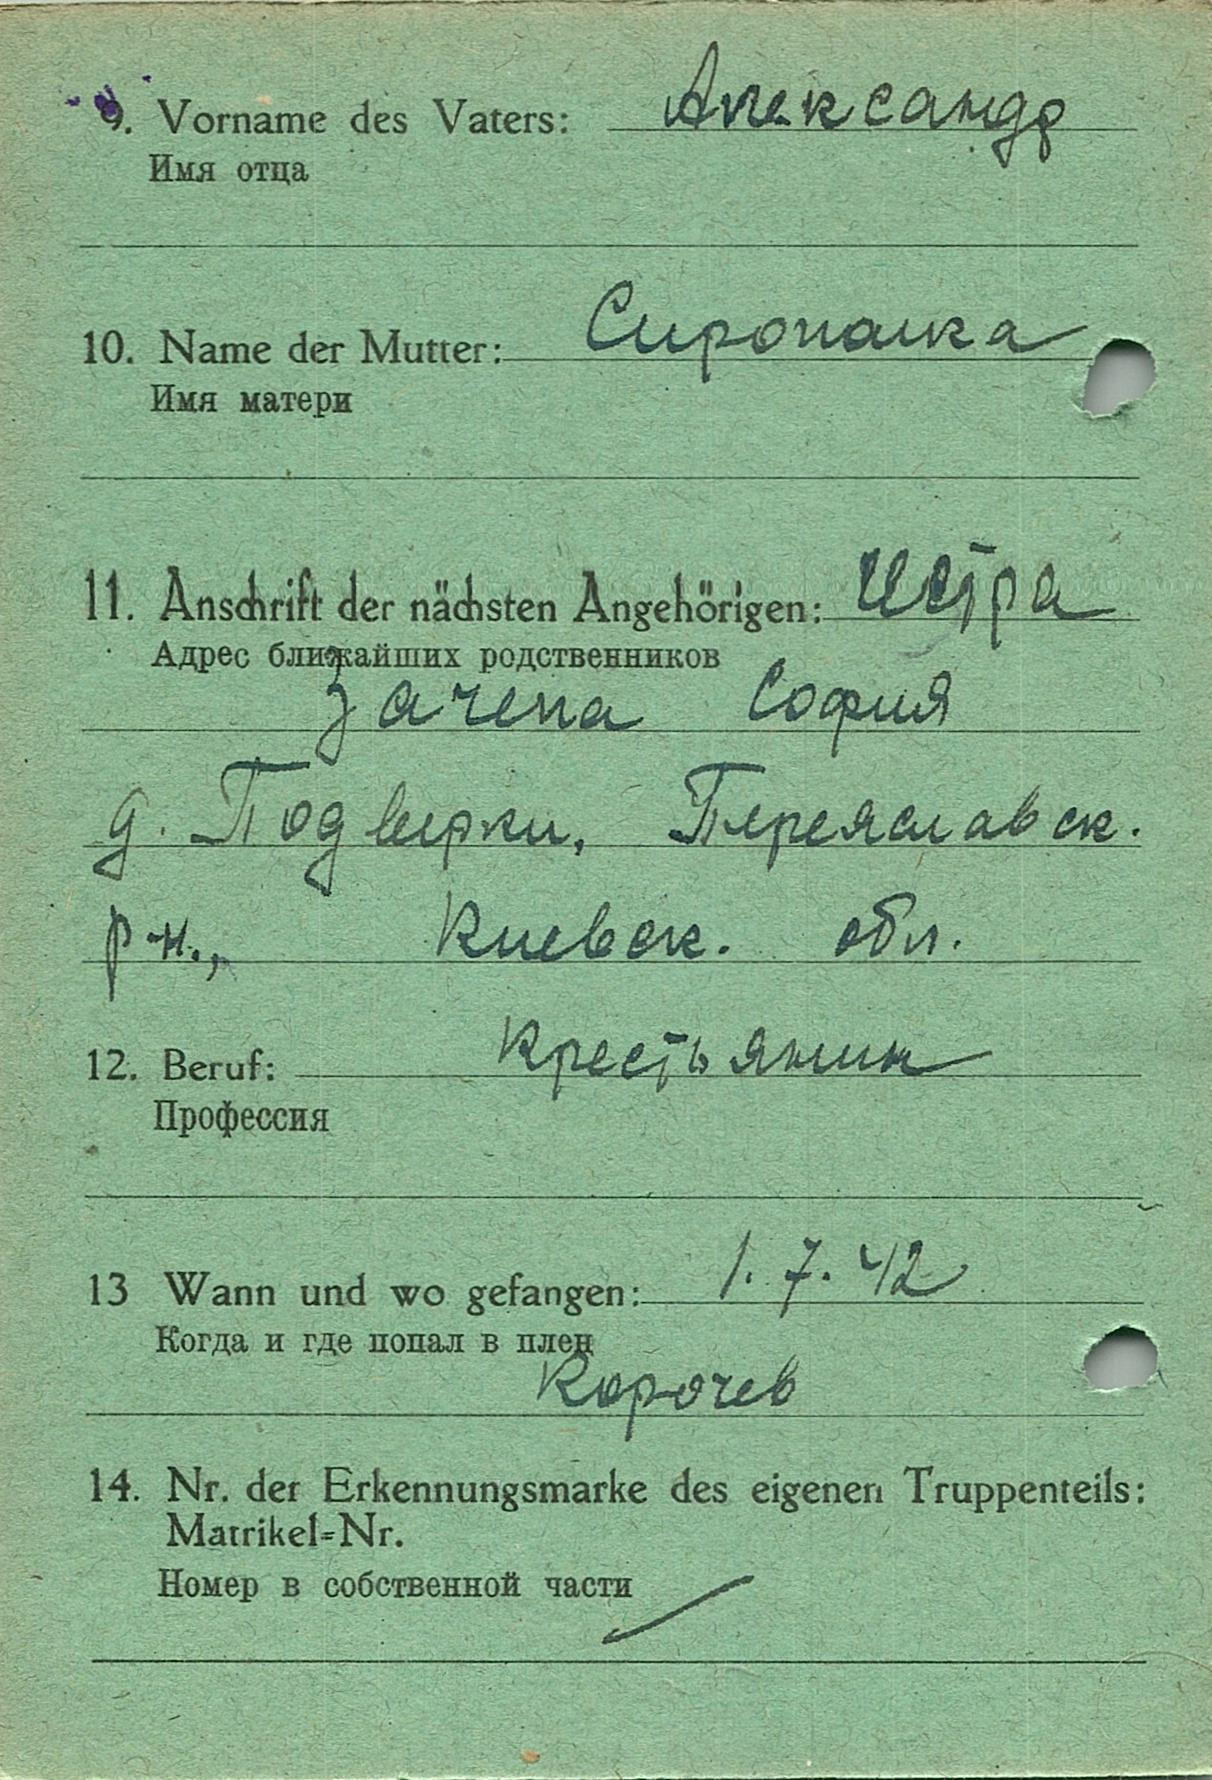 9. Vorname des Vaters: Александр
Имя отца
10. Name der Mutter: Сиропаика
Имя матери
11. Anschrift der nächsten Angehörigen: Цестра
Адрес ближайших родственников
Зачепа София
д. Подверки, Переяславск.
р-н., Киевск. обл.
12. Beruf: Крестьянин
Профессия
13 Wann und wo gefangen: 1.7.42
Когда и где попал в плен
Корочев
14. Nr. der Erkennungsmarke des eigenen Truppenteils:
Matrikel=Nr.
Номер в собственной части